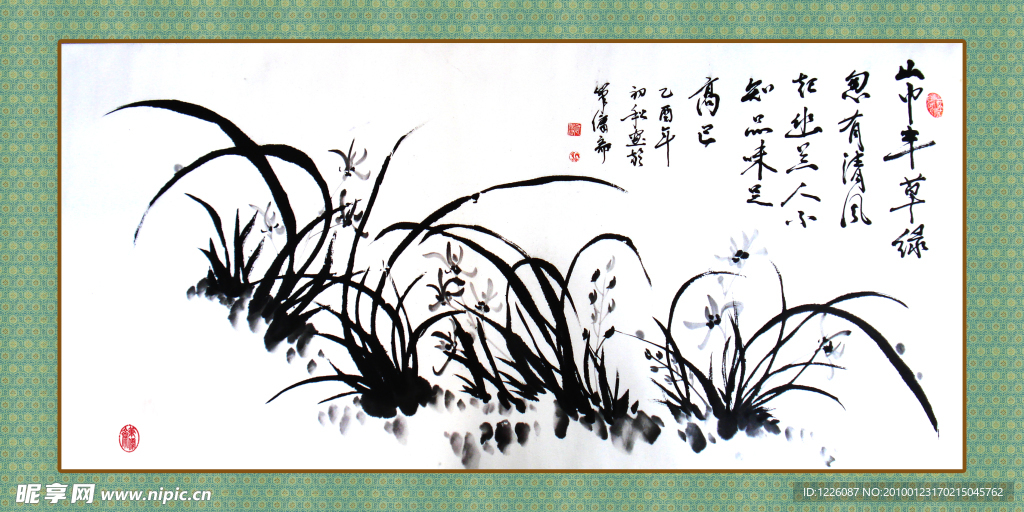 山中草绿
忽有清风
起幽兰人不
知品味足
高已
乙酉年
初秋画於
昵享网 www.nipic.cn
ID:1226087 NO:20100123170215045762